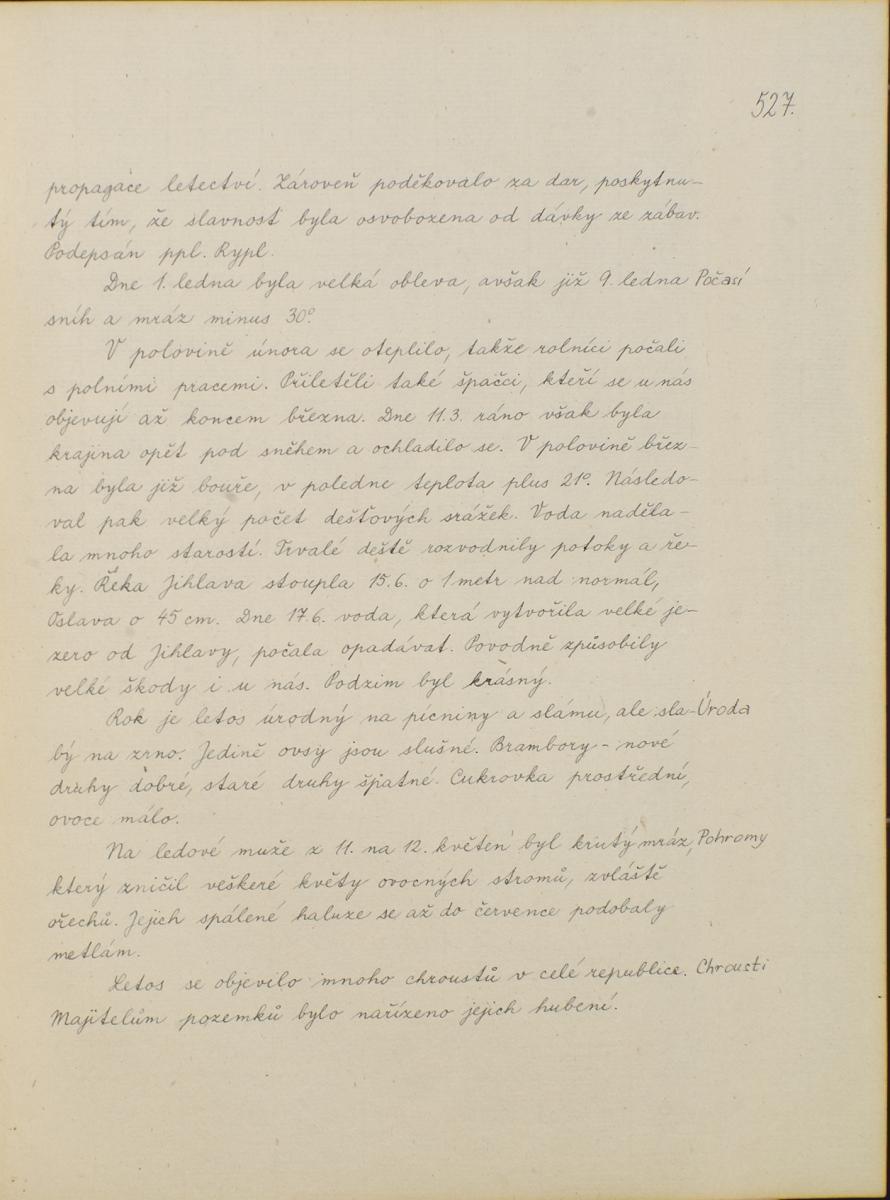 527.
propagace letectví. Zároveň poděkovalo za dar, poskytnu-
tý tím, že slavnost byla osvobozena od dávky ze zábav.
Podepsán ppl. Rypl.
Dne 1. ledna byla velká obleva, avšak již 9. ledna Počasí
sníh a mráz minus 30°.
V polovině února se oteplilo, takže rolníci počali
s polními pracemi. Přiletěli také špačci, kteří se u nás
objevují až koncem března. Dne 11.3. ráno však byla
krajina opět pod sněhem a ochladilo se. V polovině břez-
na byla již bouře, v poledne teplota plus 21°. Následo-
val pak velký počet dešťových srážek. Voda naděla-
la mnoho starostí. Trvalé deště rozvodnily potoky a ře-
ky. Řeka Jihlava stoupla 15.6. o 1 metr nad normál,
Oslava o 45 cm. Dne 17.6. voda, která vytvořila velké je-
zero od Jihlavy, počala opadávat. Povodně způsobily
velké škody i u nás. Podzim byl krásný.
Rok je letos úrodný na pícniny a slámu, ale sla- Úroda
bý na zrno. Jedině ovsy jsou slušné. Brambory - nové
druhy dobré, staré druhy špatné. Cukrovka prostřední,
ovoce málo.
Na ledové muže z 11. na 12. květen byl krutý mráz, Pohromy
který zničil veškeré květy ovocných stromů, zvláště
ořechů. Jejich spálené haluze se až do července podobaly
metlám.
Letos se objevilo mnoho chroustů v celé republice. Chrousti
Majitelům pozemků bylo nařízeno jejich hubení.